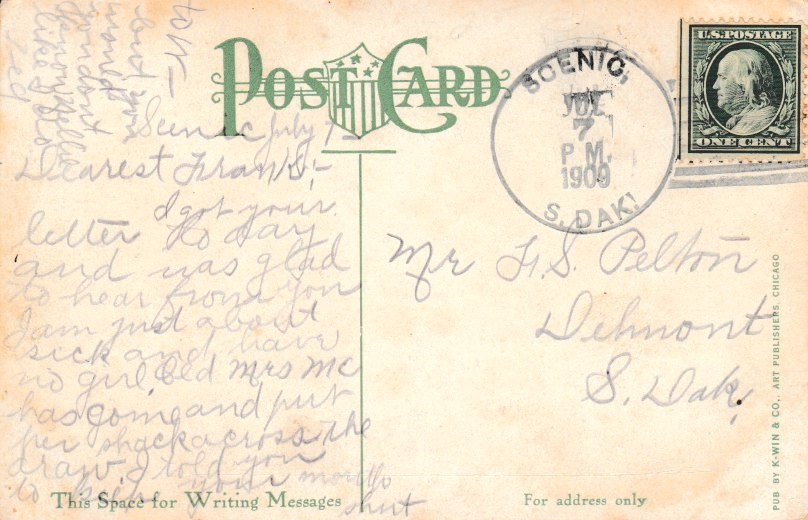 POST CARD
SCENIC,
JUL
7
P M.
1909
S. DAK.
U.S. POSTAGE
ONE CENT
Scenic July 7-
Dearest Frank;-
I got your
letter to day
and was glad
to hear from you
I am just about
sick and have
no girl, Old Mrs Mc
has gone and put
her shack across the
draw, I told you
to keep your mouth
shut
but you
would
you don't
Mr F. S. Pelton
Delmont
S. Dak,
This Space for Writing Messages
For address only
PUB BY K-WIN & CO., ART PUBLISHERS, CHICAGO